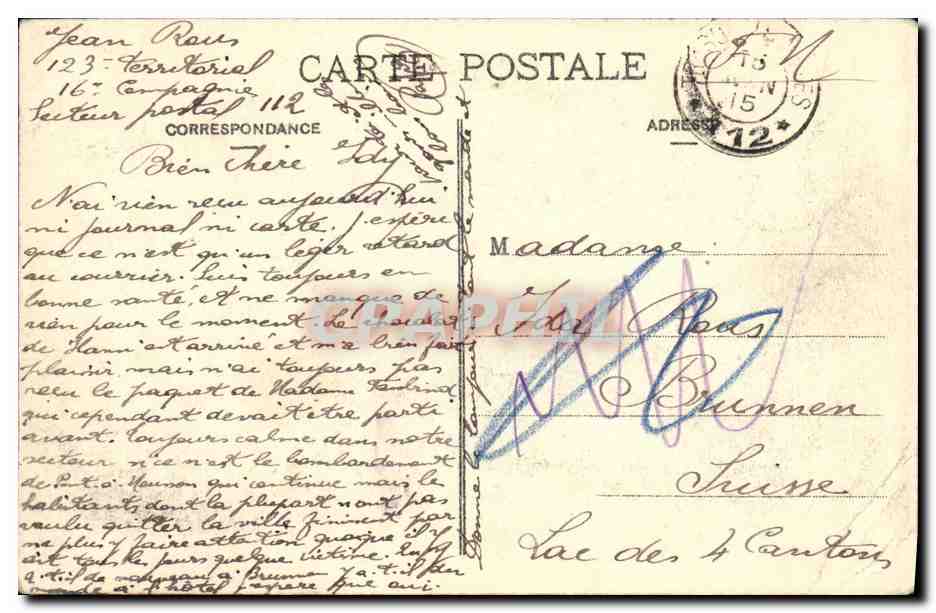 Jean Rous
123e Territorial
16e Compagnie
Secteur postal 112
CARTE POSTALE
CORRESPONDANCE
ADRESSE
F M
15
12
Bien Chère Idy
N'ai rien reçu aujourd'hui
ni journal ni carte. J'espère
que ce n'est qu'un léger retard
au courrier. Suis toujours en
bonne santé, et ne manque de
rien pour le moment Le chocolat
de Hann est arrivé et m'a bien fait
plaisir, mais n'ai toujours pas
reçu le paquet de Madame
qui cependant devait etre parti
avant. Toujours calme dans notre
secteur si ce n'est le bombardement
de Pont-à-Mousson qui continue mais les
habitants dont la plupart n'ont pas
voulu quitter la ville finissent par
ne plus y faire attention quoique il y
ait tous les jours quelque victime.
a-t-il de nouveau à Brunnen y a-t-il du
monde à l'hôtel j'espère que oui.
Donne le bonjour à tout le monde et
Madame
Ida Rous
Brunnen
Suisse
Lac des 4 Cantons
CPAPHIL